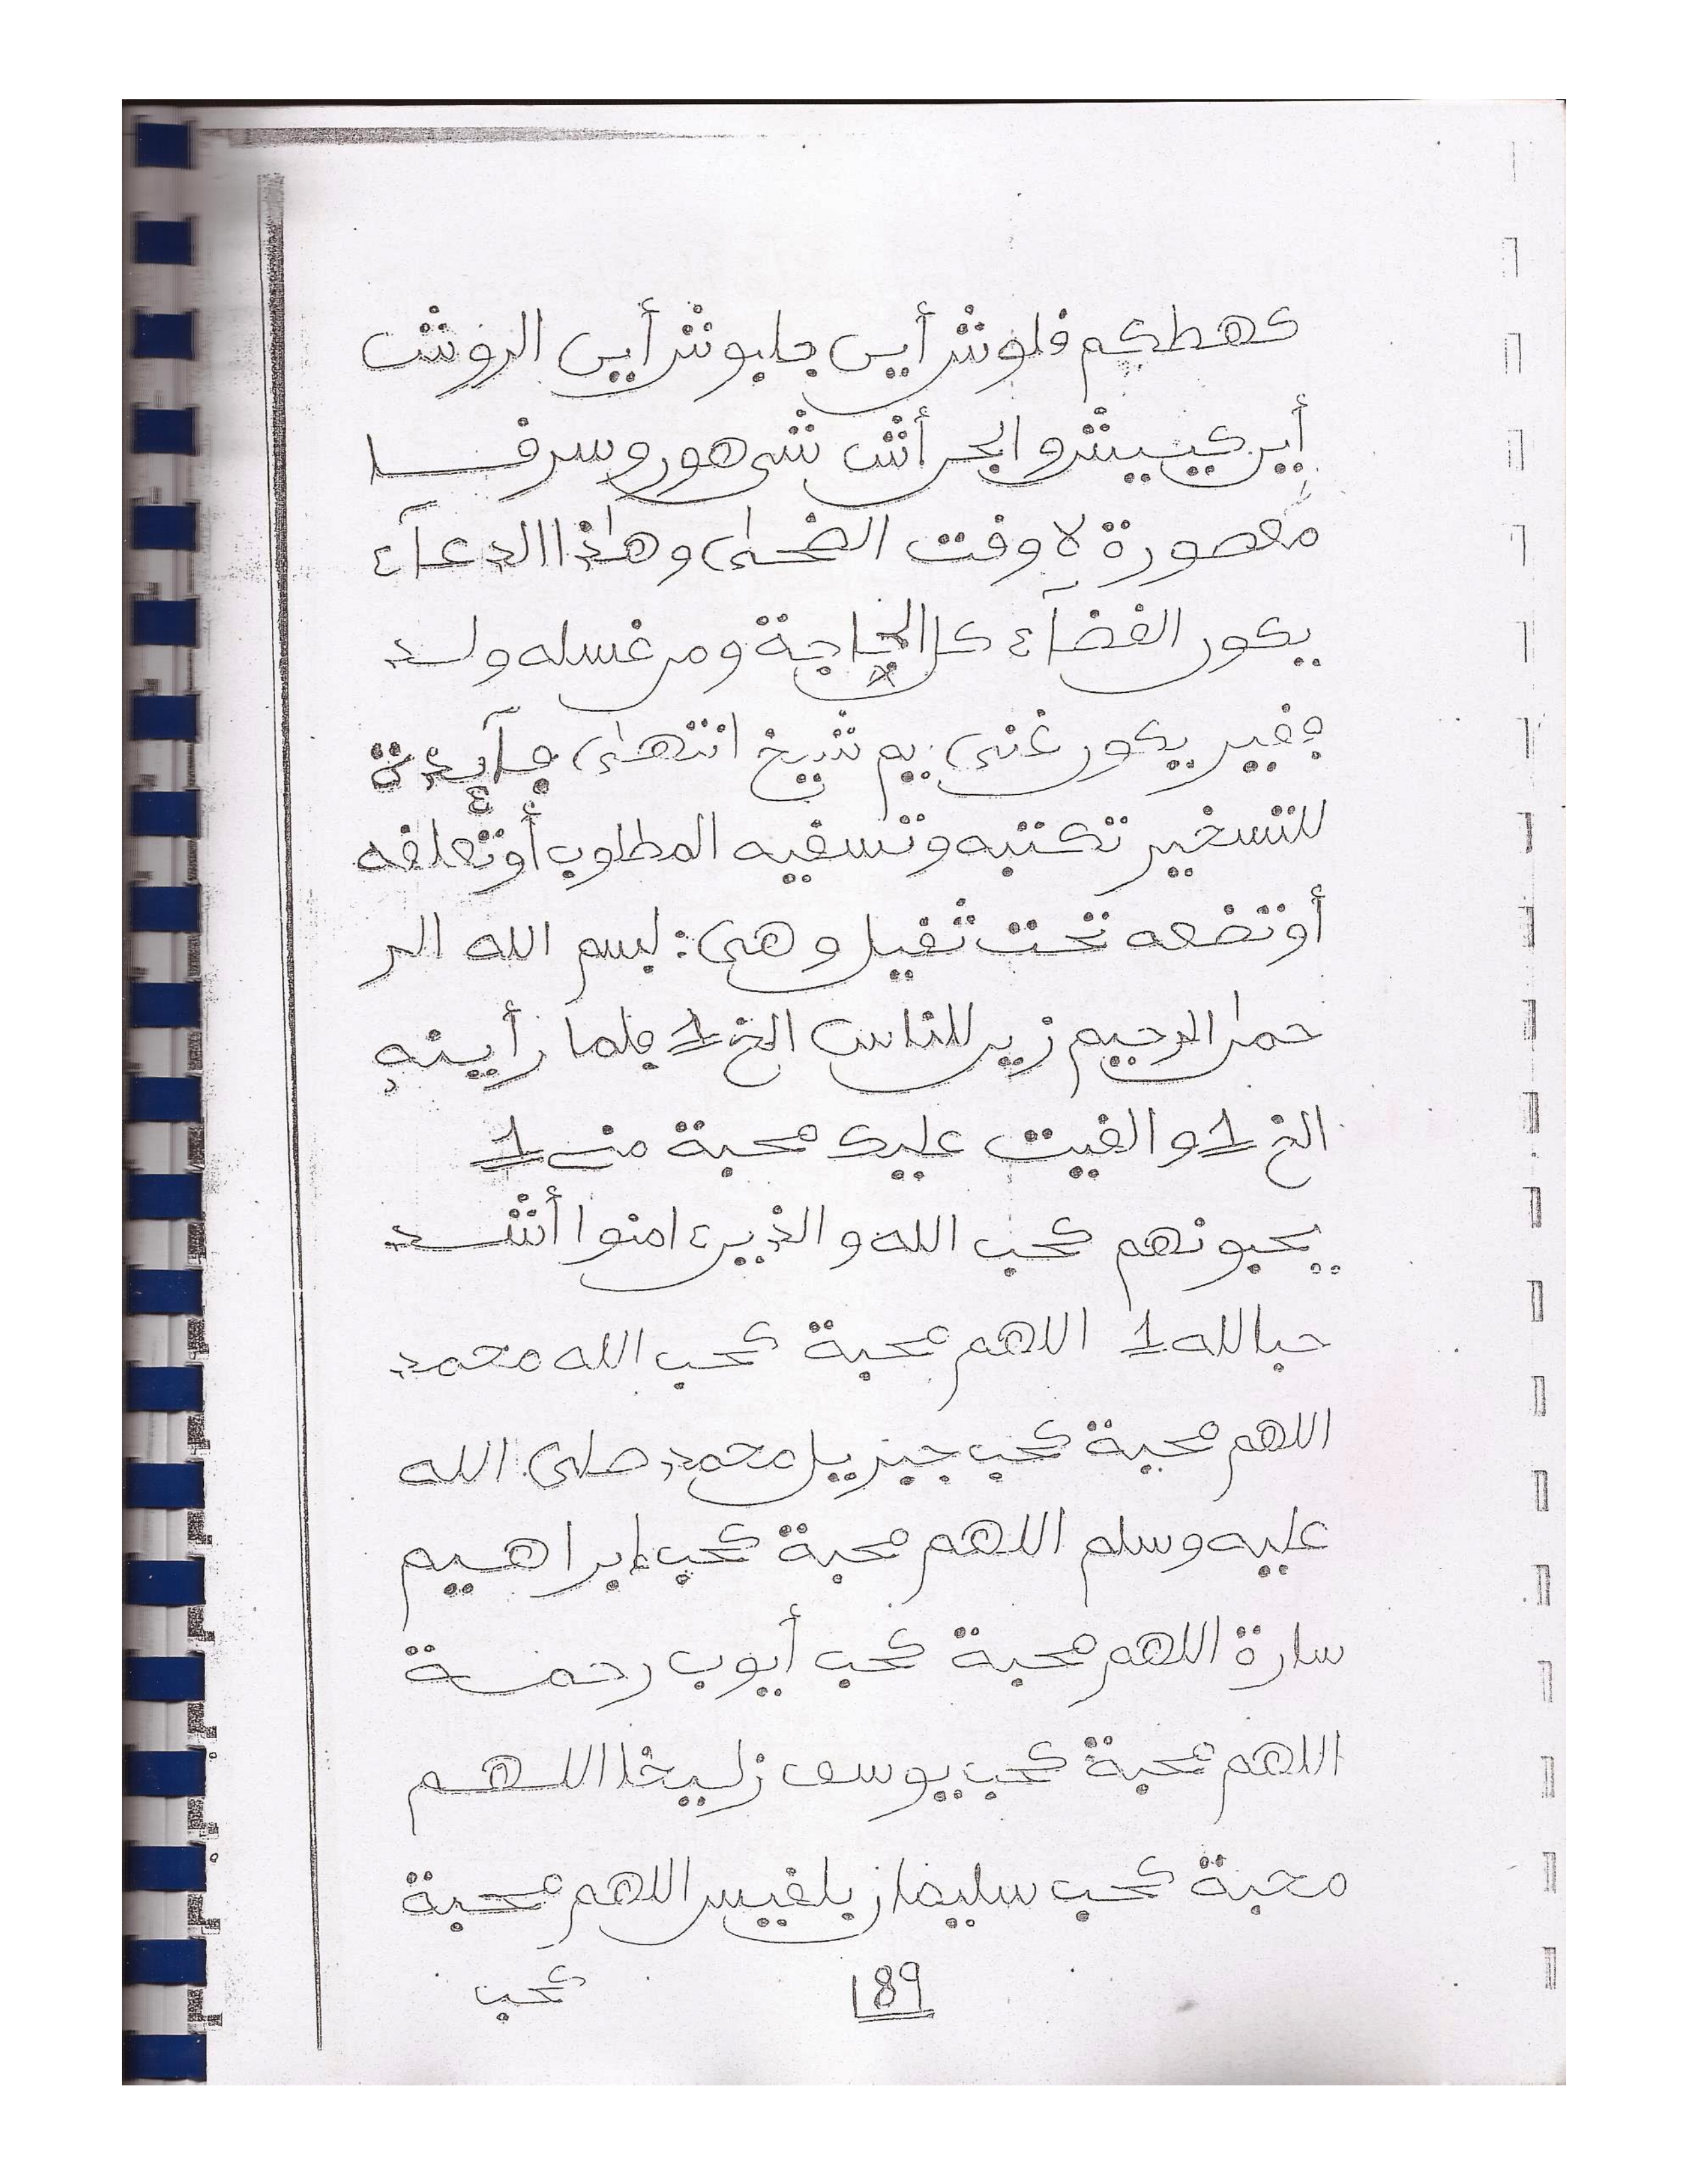 كهطكم فلوش أيى جلبوش أيى الروش
أير كييش والجر أش شى هور وسرفا
مقصورة لا وقت الضحى وهاذا الدعآء
يكور الفضآء كل الحاجة ومر غسله ولد
ففير يكور غنى يم شيخ انتهى فآيدة
للتسخير تكتبه وتسفيه المطلوب أوتعلفه
أوتضعه تحت ثفيل وهى: بسم الله الر
حمر الرحيم زير للناس الخ 1 فلما رأينه
الخ 1 والفيت عليك محبة منى 1
يحبونهم كحب الله والذير ءامنوا أشد
حبا لله 1 اللهم محبة كحب الله محمد
اللهم محبة كحب جبريل محمد صلى الله
عليه وسلم اللهم محبة كحب إبراهيم
سارة اللهم محبة كحب أيوب رحمة
اللهم محبة كحب يوسف زليخا اللهم
محبة كحب سليمان بلفيس اللهم محبة
كحب
189